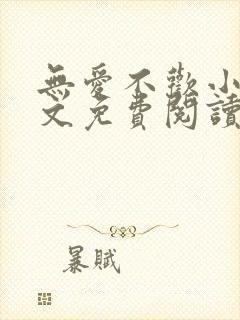 無愛不歡小
文免費閱讀
暴賦